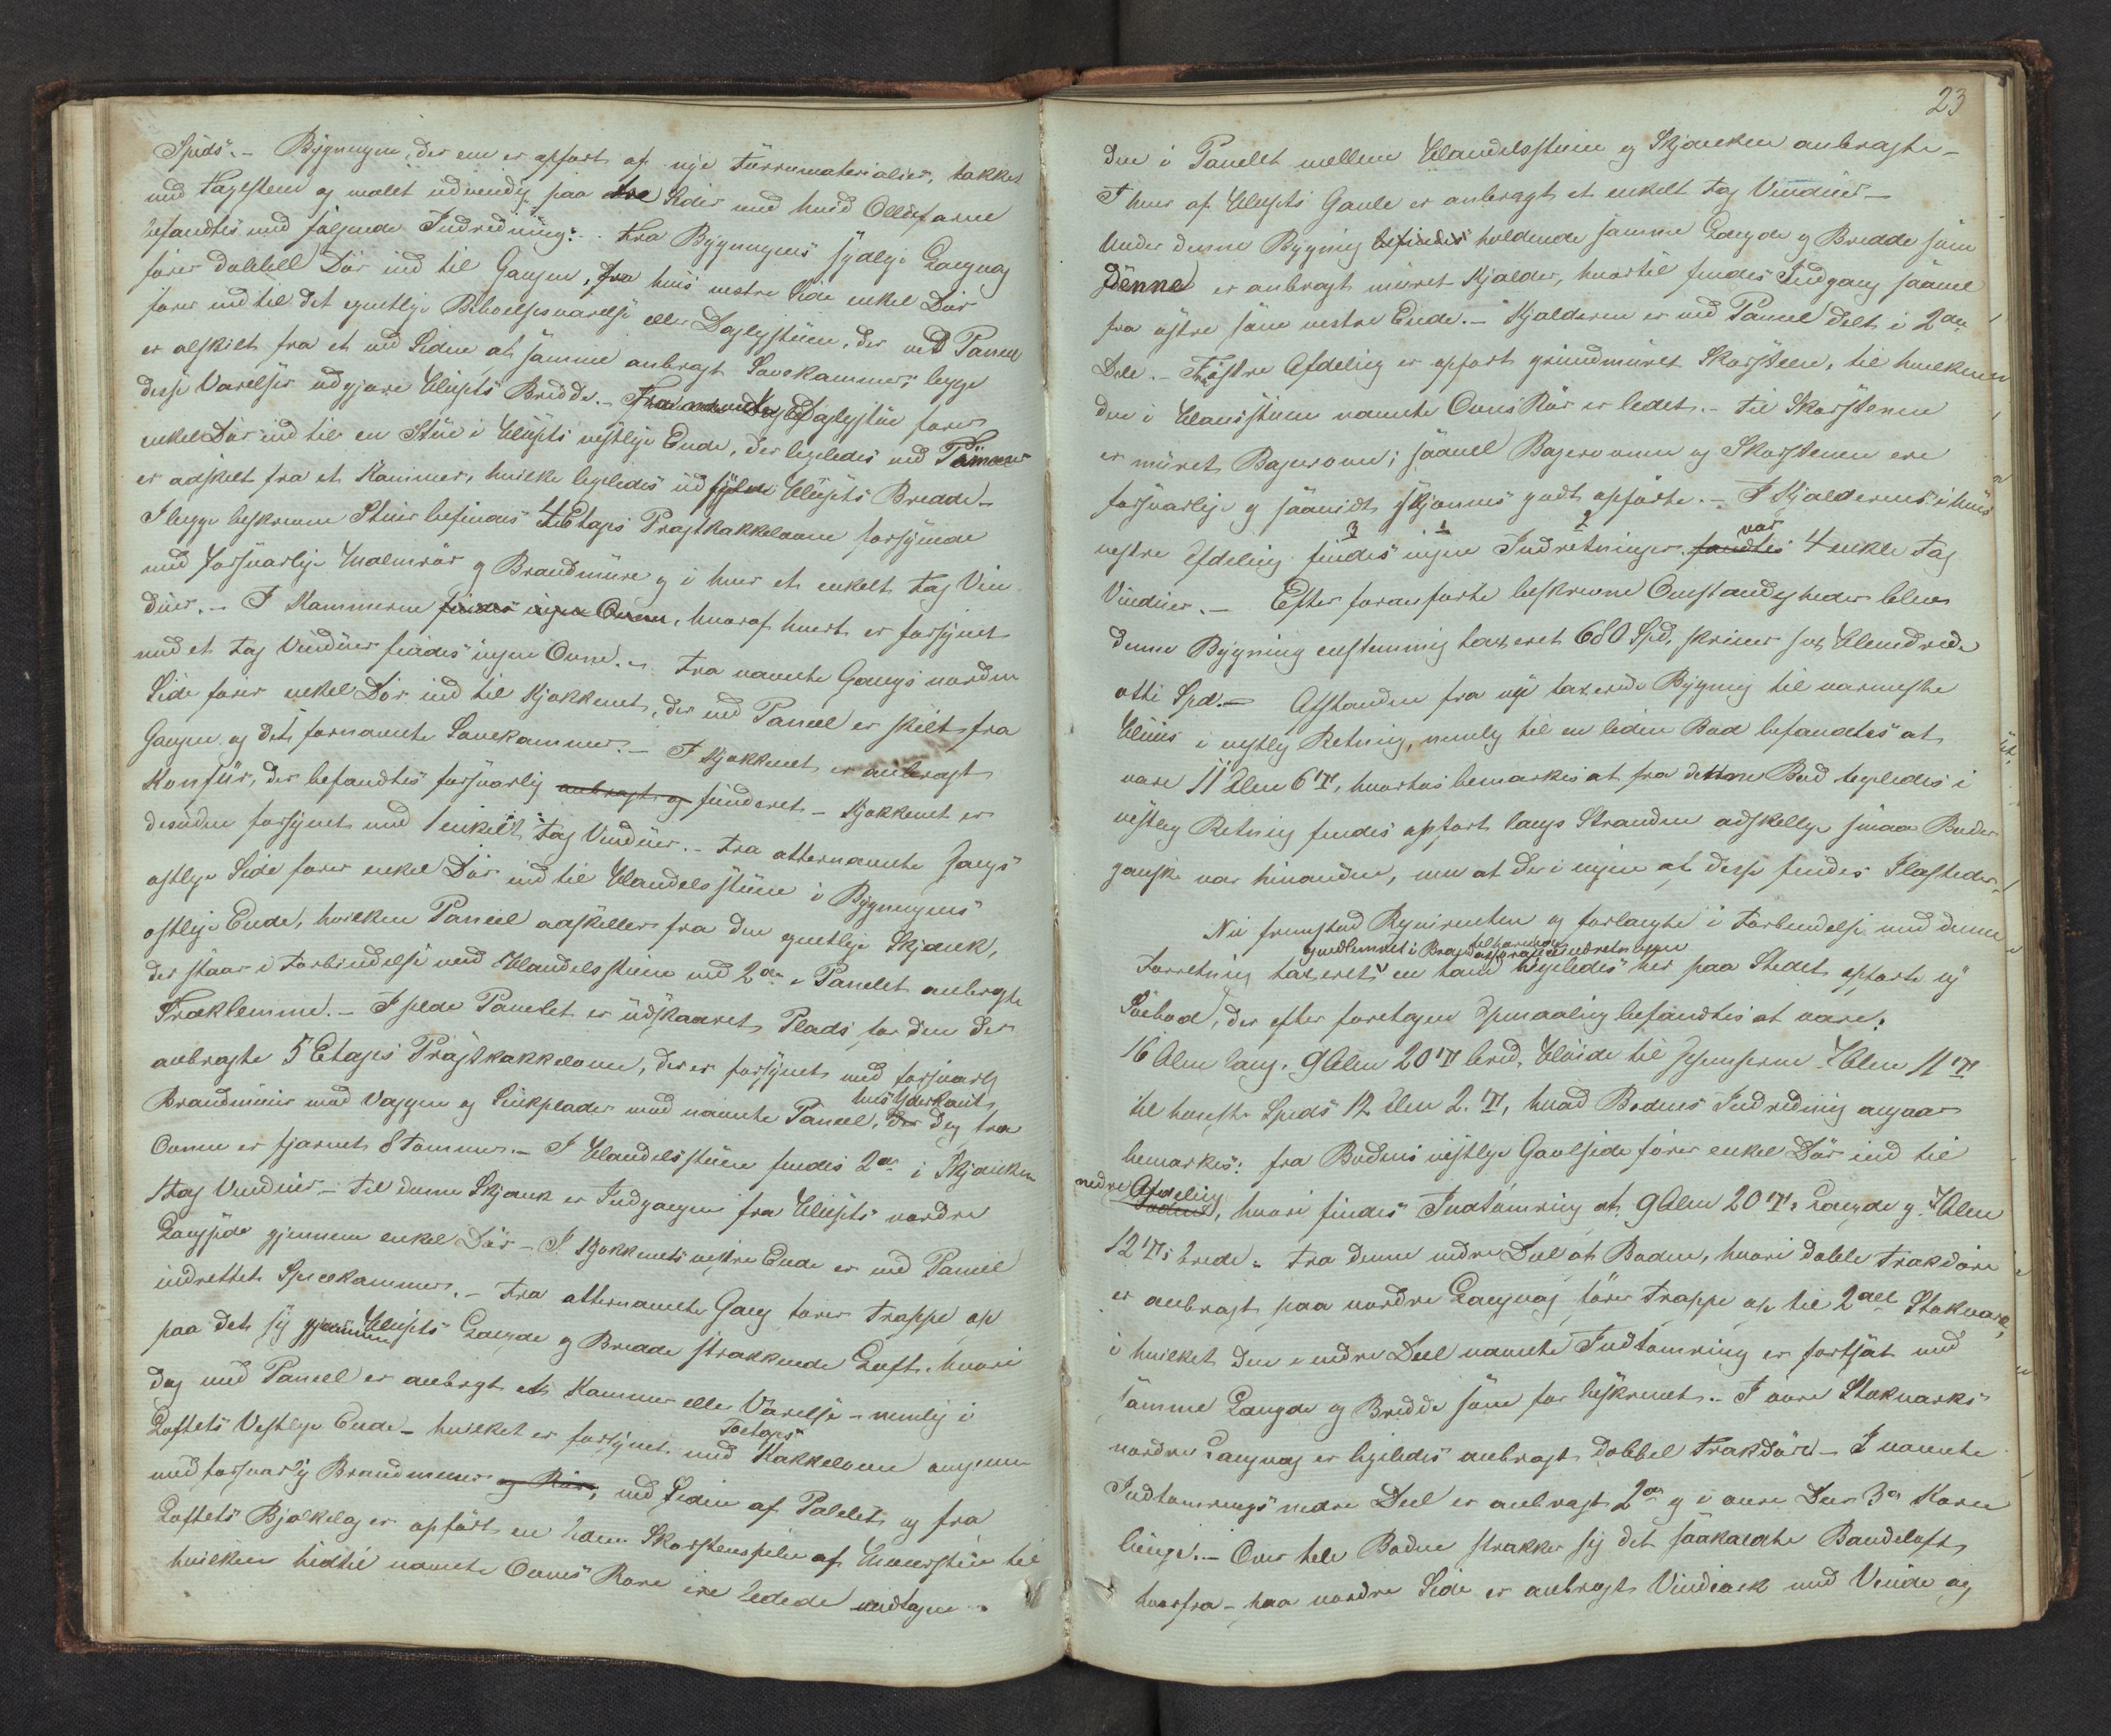 Spids. - Bygningen, der em er opført af nye Tørrematerialier, takket
med Tagsteen og malet udvendig paa tre Sider med hvid Oliefarve
befandtes med følgende Indredning: - Fra Bygningens sydlige Langvæg
fører dobbell Dør ind til Gangen, fra hvis vestre Side enkel Dør
fører ind til det egentlige Beboelsesværelse eller Dagligstuen, der ved Paneel
er afskilt fra et ved Siden af samme anbragt Sovekammer; begge
disse Værelser udgjøre Husets Bredde. - Fra nævnte Dagligstue fører
enkel Dør ind til en Stue i Husets vestlige Ende, der ligeledes ved Paneel
er adskilt fra et Kammer, hvilke ligeledes udfylde Husets Bredde -
I begge beskrevne Stuer befindes 4 Etages Pragtkakkelovne forsynede
med forsvarlige Malmrør og Brandmure og i hver et enkelt Fag Vin
duer. - I Kammerne findes ingen Ovne, hvoraf hvert er forsynet
med et Fag Vinduer findes ingen Ovne. - Fra nævnte Gangs nordre
Side fører enkel Dør ind til Kjøkkenet, der ved Paneel er skilt fra
Gangen og det fornævnte Sovekammer. - I Kjøkkenet er anbragt
Komfur, der befandtes forsvarlig anbragt og funderet - Kjøkkenet er
desuden forsynet med 1 enkelt Fag Vinduer. - Fra atternævnte Gangs
østlige Side fører enkel Dør ind til Handelsstuen i Bygningens
østlige Ende, hvilken Paneel adskiller fra den egentlige Skjænk,
der staar i Forbindelse med Handelsstuen ved 2de i Panelet anbragte
Træklemme. - I selve Panelet er udskaaret Plads for den der
anbragte 5 Etages Pragtkakkelovn, der er forsynet med forsvarlig
Brandmuur mod Væggen og Sinkplader mod nævnte Paneel, der dog fra
hvis Yderkant
Ovnen er fjernet 8 Tommer. - I Handelsstuen findes 2de i Skjænken
1 Fag Vinduer - Til denne Skjænk er Indgangen fra Husets nordre
Langside gjennem enkel Dør - I Kjøkkenets vestre Ende er ved Paneel
indrettet Spisekammer. - Fra atternævnte Gang fører Trappe op
paa det sig gjennem Husets Længde og Bredde strækkende Loft, hvori
dog ved Paneel er anbragt et Kammer eller Værelse - nemlig i
Loftets Vestlige Ende - hvilket er forsynet med Toetages Kakkelovn
med forsvarlig Brandmuur og Rør, ved Siden af Paleet, og fra
Loftets Bjælkelag er opført en Skorsteenspibe af Muursteen til
hvilken hidtil nævnte Ovnes Røre ere ledede undtagen
23
den i Panelet mellem Handelsstuen og Skjænken anbragte -
I hver af Husets Gavle er anbragt et enkelt Fag Vinduer -
Under denne Bygning befindes holdende samme Længde og Bredde som
denne er anbragt muret Kjælder, hvortil findes Indgang saavel
fra østre som vestre Ende. - Kjælderen er ved Paneel delt i 2de
Dele. - I østre Afdeling er opført grundmuret Skorsteen, til hvilken
den i Handelsstuen nævnte Ovns Rør er ledet. - Til Skorstenen
er muret Bagerovn; saavel Bagerovnen og Skorstenen ere
forsvarlige og saavidt skjønnes godt opførte. - I Kjælderens i hvis
vestre Afdeling findes ingen Indretninger fandtes var 4 enkle Fag
3 1 2
Vinduer. - Efter foranførte beskrevne Omstændigheder blev
denne Bygning enstemmig taxeret 680 Spd, skriver sex Hundrede
otti Spd. - Afstanden fra nys taxerede Bygning til nærmeste
Huus i vestlig Retning, nemlig til en liden Bod befandtes at
være 11 Alen 6 T., hvorhos bemærkes at fra denne Bod ligeledes i
vestlig Retning findes opført langs Stranden adskillige smaa Boder
ganske nær hinanden, men at der i ingen af disse findes Ildsteder. -
Nu fremstod Reqvirenten og forlangte i Forbindelse med denne
Forretning taxeret en ham tilhørende ligeledes her paa Stedet opførte ny
Søebod, der efter foretagen Opmaaling befandtes at være:
16 Alen lang, 9 Alen 20 T. bred, Høide til Gesimserne 7 Alen 11 T.
til høieste Spids 12 Alen 2. T., hvad Bodens Indredning angaar
bemærkes: fra Bodens vestlige Gavlside fører enkel Dør ind til
nedre Afdeling Bodens, hvori findes Indtømring af 9 Alen 20 T.s Længde og 7 Alen
12 T.s Brede. - Fra denne nedre Deel af Boden, hvori doble Trækdøre
er anbragt paa nordre Langvæg, fører Trappe op til 2det Stokværk,
i hvilket den i nedre Deel nævnte Indtømring er fortsat med
samme Længde og Bredde som før beskrevet. - I øvre Stokværks
nordre Langvæg er ligeledes anbragt dobbel Trækdøre - I nævnte
Indtømrings nedre Deel er anbragt 2de og i øvre Deel 3de Korn
binge. - Over hele Boden strækker sig det saakaldte Bandeloft,
hvorfra - paa nordre Side er anbragt Vindeark med Vinde og